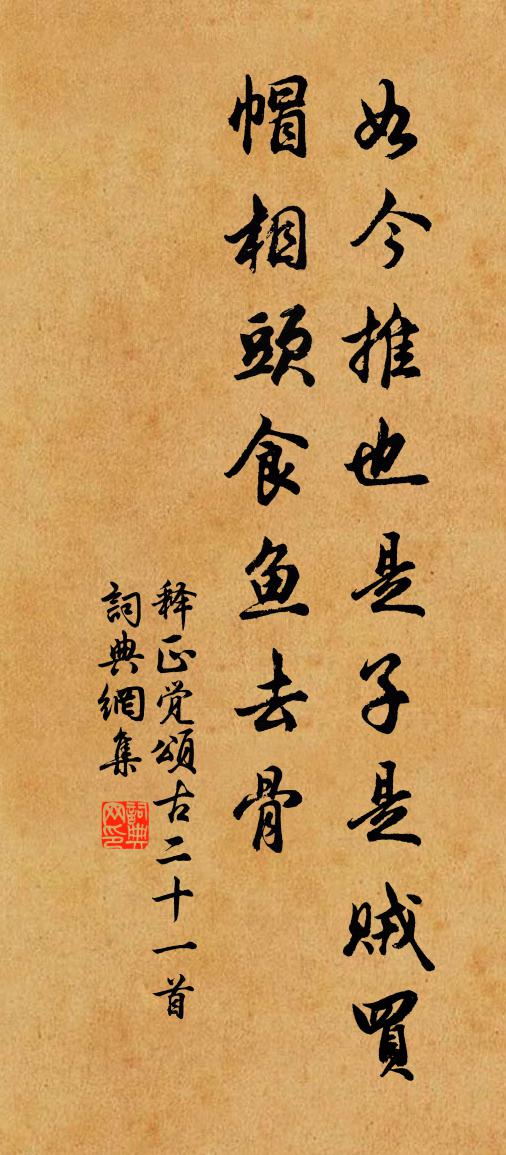 如今推也是子是贼買
帽相頭食鱼去骨
释正觉頌古二十一首
詞典網集
詞典网印